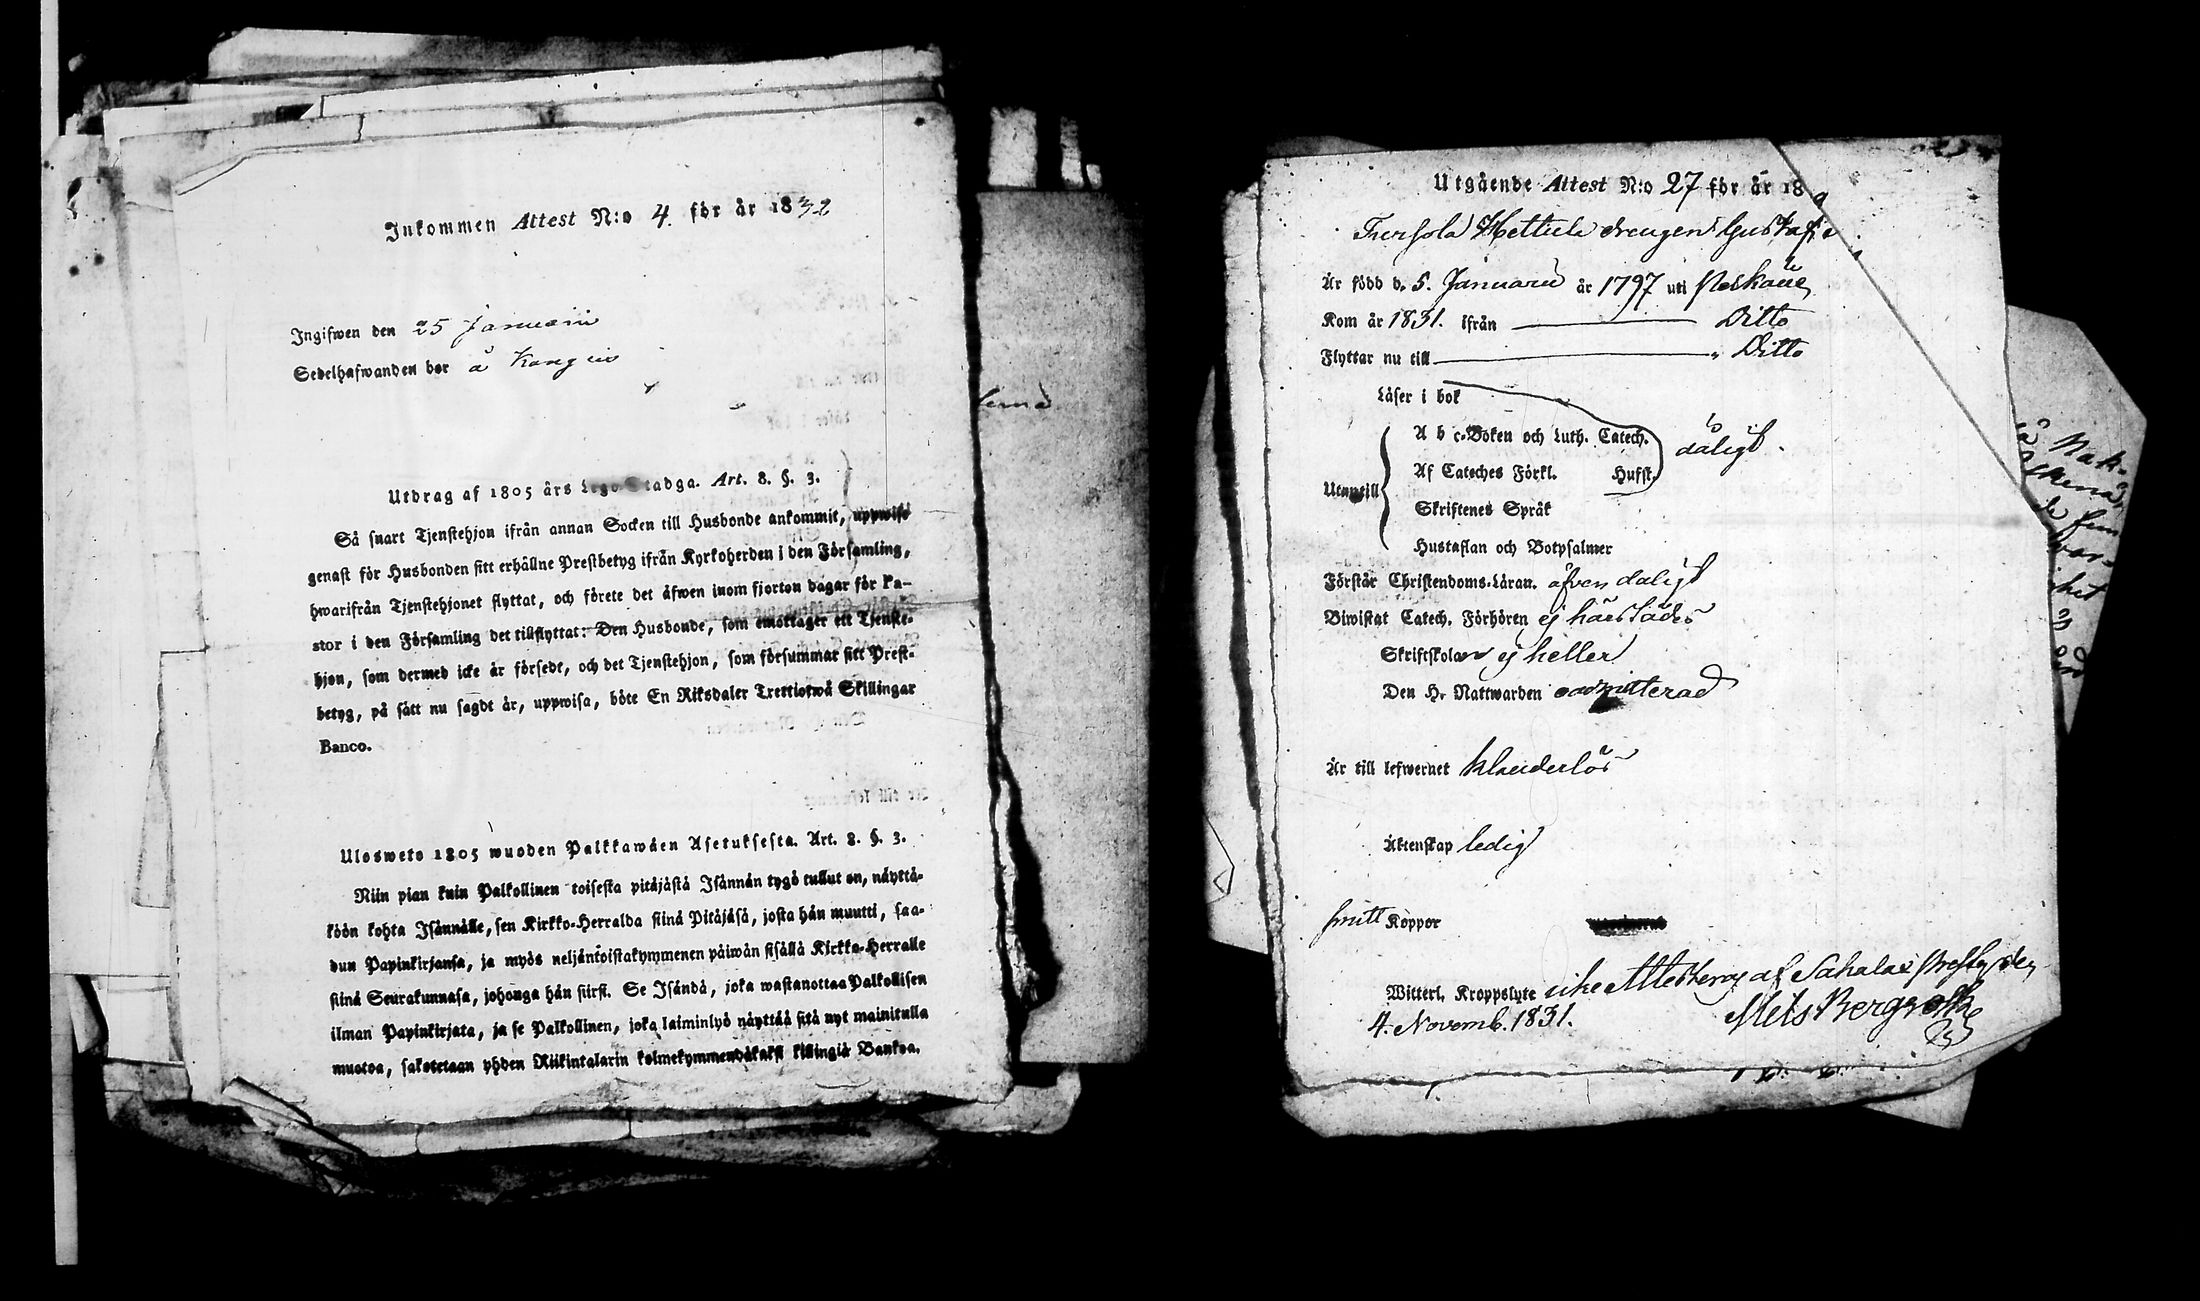 Inkommen Attest N:o 4. för år 1832
Ingifwen den 25 Januarii
Sedelhafwanden bor å
Utdrag af 1805 års Lego-Stadga. Art. 8. §. 3.
Så snart Tjenstehjon ifrån annan Socken till Husbonde ankommit, uppwise
genast för Husbonden sitt erhållne Prestbetyg ifrån Kyrkoherden i den Församling,
hwarifrån Tjenstehjonet flyttat, och förete det äfwen inom fjorton dagar för Pa-
stor i den Församling det tillflyttat: Den Husbonde, som emottager ett Tjenste-
hjon, som dermed icke är försedt, och det Tjenstehjon, som försummar sitt Prest-
betyg, på sätt nu sagdt är, uppwisa, böte En Riksdaler Trettiotwå Skillingar
Banco.
Ulosweto 1805 wuoden Palkkawäen Asetuksesta. Art. 8. §. 3.
Niin pian kuin Palkollinen toisesta pitäjästä Isännän tygö tullut on, näyttä-
köön kohta Isännälle, sen Kirkko-Herralda siinä Pitäjäsä, josta hän muutti, saa-
dun Papinkirjansa, ja myös neljäntoistakymmenen päiwän sisällä Kirkko-Herralle
siinä Seurakunnasa, johonga hän siirsi. Se Isändä, joka wastanottaa Palkollisen
ilman Papinkirjata, ja se Palkollinen, joka laiminlyö näyttää sitä nyt mainitulla
muotoa, sakotetaan yhden Riikintalarin kolmekymmendäkaksi killingiä Bankoa.
Utgående Attest N:o 27 för år 18
Hettula drengen Gustaf
Är född d. 5. Januarii år 1797 uti
Kom år 1831. ifrån Ditto
Flyttar nu till " Ditto
Läser i bok
A b c-Boken och Luth. Catech.
Af Cateches Förkl. Hufst.
dåligt.
Utantill
Skriftenes Språk
Hustaflan och Botpsalmer
Förstår Christendoms-Läran. äfven dåligt
Biwistat Catech. Förhören ej härstädes
Skriftskolan ej heller
Den H. Nattwarden admitterad
Är till lefwernet klanderlös
Äktenskap ledig
haft Koppor
Witterl. Kroppslyte icke Attesteras af
4. Novemb. 1831.
Nils Bergroth